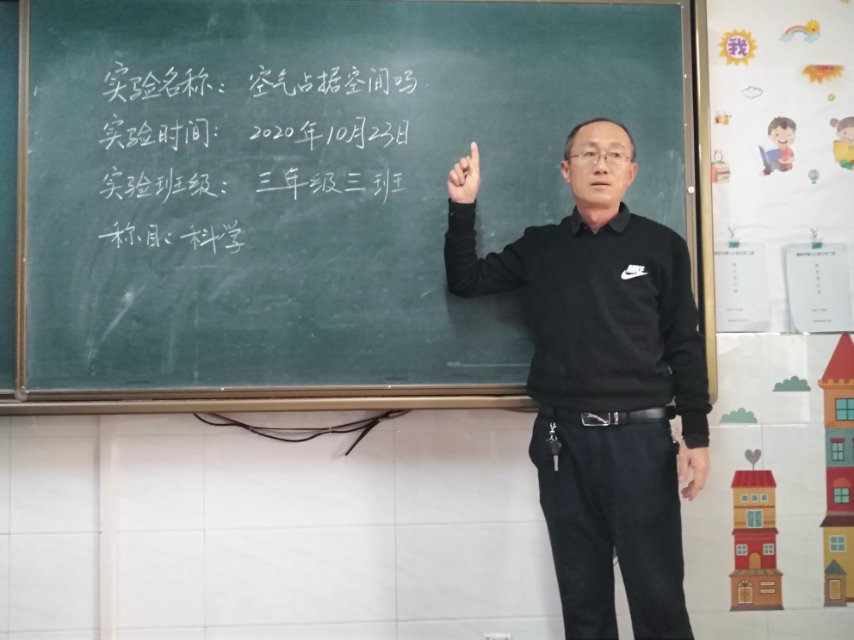 实验名称：空气占据空间吗
实验时间：2020年10月23日
实验班级：三年级三班
称目：科学
NIKE
我